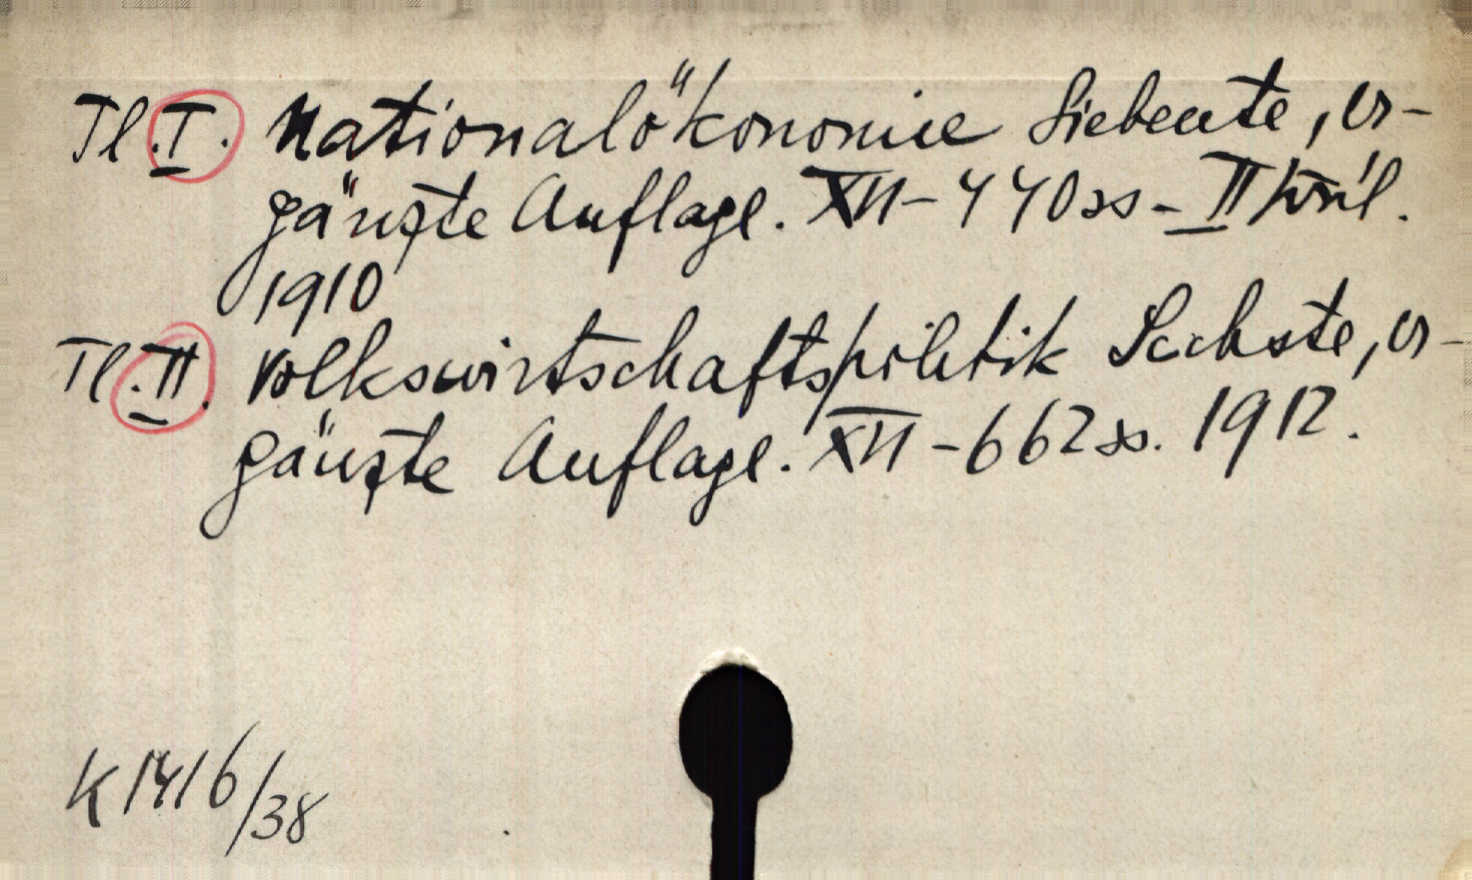 Tl. I. Nationalökonomie Siebente, er-
gänzte Auflage. XII-440 ss - II
1910
Tl. II. Volkswirtschaftspolitik Sechste, er-
gänzte Auflage. XII-662 ss. 1912.
K 1416/38